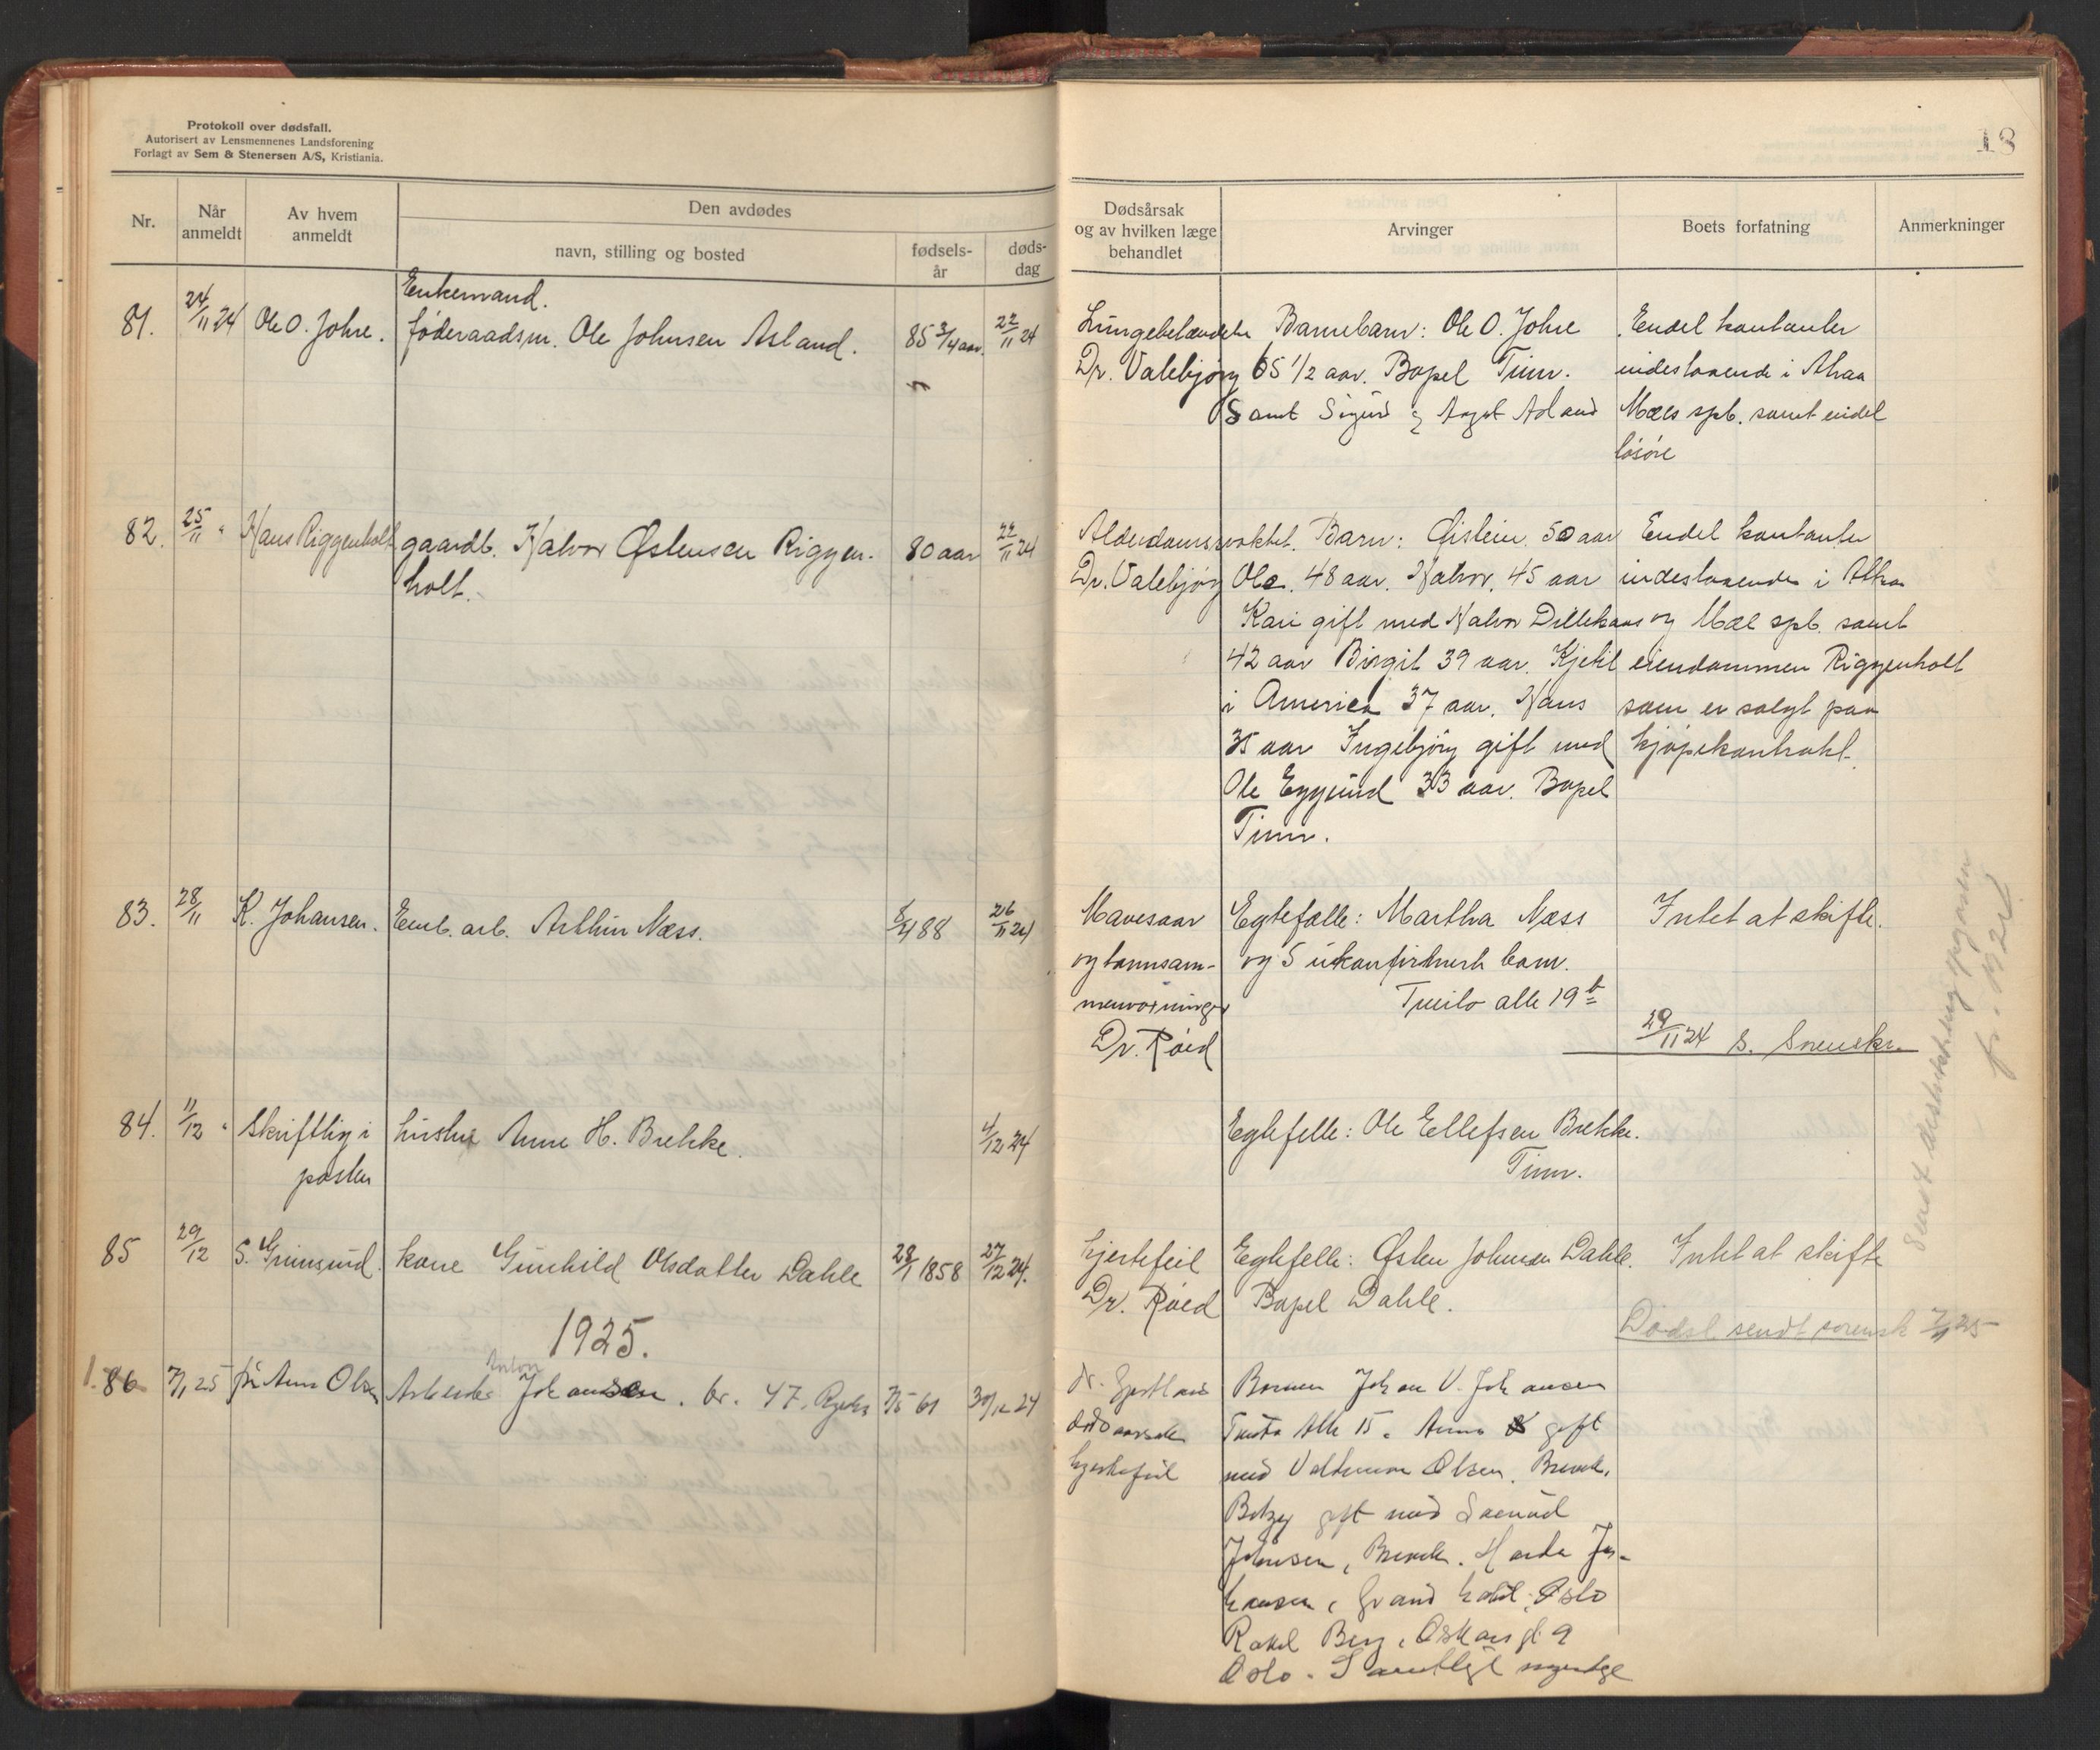 Protokoll over dødsfall.
Autorisert av Lensmennenes Landsforening
Forlagt av Sem & Stenersen A/S, Kristiania.
Nr.
Når anmeldt
Av hvem anmeldt
Den avdødes
navn, stilling og bosted
fødsels-år
døds-dag
Enkemand.
81. 24/11 24 Ole O. Johre. føderaadsm. Ole Johnsen Asland. 85 3/4 aar. 22/11 24
82. 25/11 " Hans Riggenholt gaardb. Halvor Østensen Riggen- 80 aar 22/11 24
holt.
83. 28/11 K. Johansen. Emb. arb. Arthur Næss. 8/4 88 26/11 24
84. 11/12 " Skriftlig i hustru Anne H. Brekke. 4/12 24
posten
85 29/12 S. Grimsrud. kone Gunhild Olsdatter Dahle 28/1 1858 27/12 24.
1925.
Anton
1. 86 7/1 25 fr Anna Olsen Arbeider Johansen. br. 47, 7/5 61 30/12 24
18
Dødsårsak
og av hvilken læge
behandlet
Arvinger
Boets forfatning
Anmerkninger
Lungebetændelse Barnebarn: Ole O. Johre Endel kontanter
Dr. Valebjørg 65 1/2 aar. Bopel Tinn. indestaaende i Atraa
Samt Sigurd og Aasland Mæls spb. samt endel
løsøre
Alderdomssvakhet. Barn: Øistein. 50 aar Endel kontanter
Dr. Valebjørg Ole. 48 aar. Halvor. 45 aar indestaaende i Atraa
Kari gift med Halvor og Mæl spb. samt
42 aar Birgit 39 aar. Kjetil eiendommen Riggenholt
i America 37 aar. Hans som er solgt paa
35 aar Ingebjørg gift med kjøpekontrakt.
Ole Eggerud 33 aar. Bopel
Tinn.
Mavesaar Egtefælle: Martha Næss Intet at skifte.
og tarmsam- og 5 ukonfirmerte barn.
menvoxninger Tveito alle 19 b
Dr. Røed 29/11 24 S.
Egtefelle: Ole Ellefsen Brekke.
Tinn.
hjertefeil Egtefelle: Østen Johnsen Dahle. Intet at skifte
Dr. Røed Bopel Dahle.
Dødsf. sendt sorensk. 7/1 25
Dr. Barnene Johan V. Johansen
Tveito Alle 15. Anna gift
hjertefeil med Valdemar Olsen, Brevik.
Betzy gift med
Johnsen, Brevik. Jo-
hansen, Grand hotel, Oslo
Rakel Berg, Oskars gt. 9
Oslo. Samtlige myndige